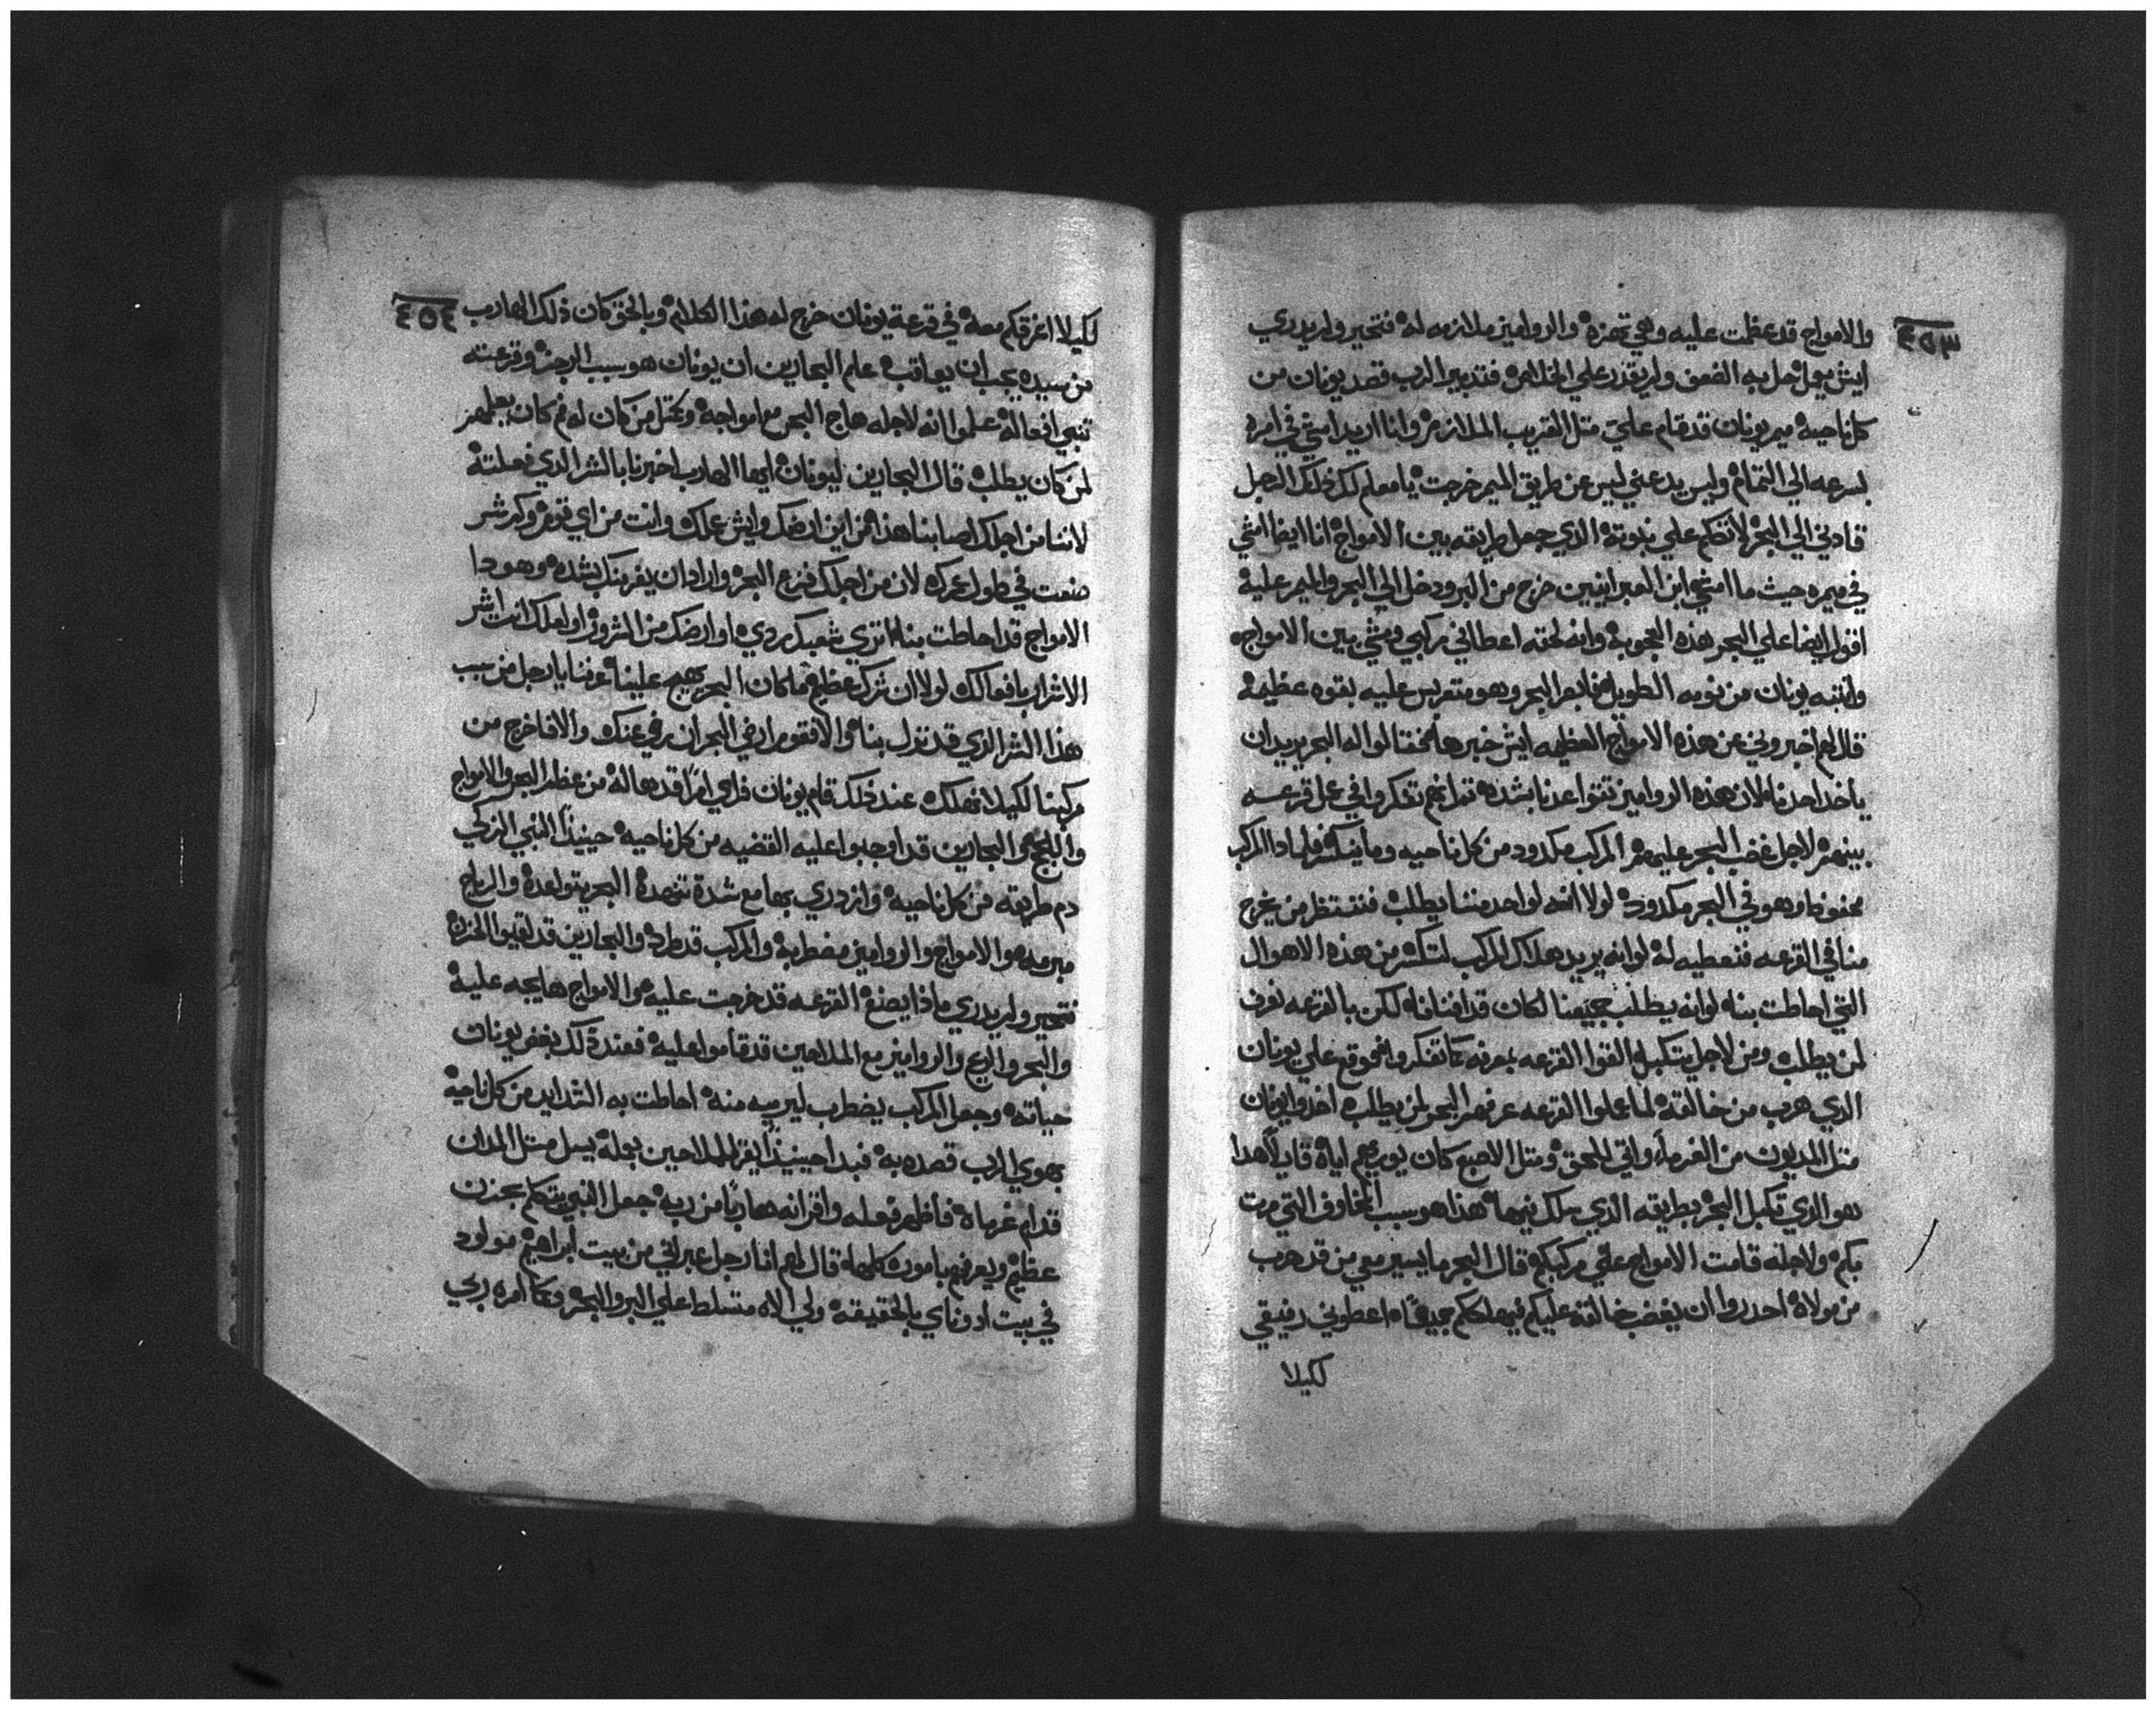 ٤٥٣
والامواج قد عظمت عليه وهي تهزه والروامیز ملازمه له فتحير ولم يدري
ايش يعمل حل به الضعف ولم يقدر علي الخلاص فتدبير الرب قصد يونان من
كل ناحيه ميم يونان قد قام علي متل القريب الملازم وانا اريد امشي في امره
بسرعه الي التمام وليس يدعني ليس عن طريق الميمر خرجت يا معلم لكن ذلك الرجل
قادني الي البحر لاتكلم علي نبوته الذي جعل طريقه بين الامواج انا ايضا امشي
في ميمره حيث ما امشي ابن العبرانيين خرج من البر ودخل الي البحر والميمر عليه
اقول ايضا علي البحر هذه العجوبه وانه لحقته اعطاني مركبي ومشي بين الامواج
وانتبه يونان من نومه الطويل فابصر البحر وهو متعربس عليه بقوه عظيمة
قال لهم اخبروني عن هذه الامواج العظيمه ايش خبرها قالوا له البحر يريد ان
ياخد احدنا لان هذه الروامیز تتواعدنا بشده تم انهم تفكروا في عمل قرعه
بينهم لاجل غضب البحر عليهم المركب مكدود من كل ناحيه وما ينكسر فلماذا المركب
محفوظ وهو في البحر مكدود لولا انه لواحد مننا يطلب فننتظر من يخرج
منا في القرعه فنعطيه له لو انه يريد هلاك المركب لتكسر من هذه الاهوال
التي احاطت بنا لو انه يطلب جميعنا لكان قد افنانا لكن بالقرعه نعرف
لمن يطلب ومن لاجل يتكبل القوا القرعه بمعرفه كما تفكروا فوقع علي يونان
الذي هرب من خالقه لما عملوا القرعه عرفهم البحر لمن يطلب اخدوا يونان
متل المديون من الغرماء واتي للحق ومتل الاصبع كان يوريهم اياه قايلا هدا
هو الذي تكبل البحر بطريقه الذي سلك فيها هذا هو سبب المخاوف التي مرت
بكم ولاجله قامت الامواج علي مركبكم قال البحر ما يسير معي من قد هرب
من مولاه احدروا ان يغضب خالقه عليكم فيهلككم جميعا اعطوني رفيقي
لكيلا
٤٥٤
لكيلا اغرقكم معه في قرعة يونان خرج له هذا الكلام وبالحق كان ذلك الهارب
من سيده يجب ان يعاقب علم البحارين ان يونان هو سبب الرجز وقرعته
تنبي افعاله علموا انه لاجله هاج البحر مع امواجه من كان له فم كان يعلمهم
لمن كان يطلب قال البحارين ليونان ايها الهارب اخبرنا بالشر الذي فعلته
لاننا من اجلك اصابنا هذا من اين ارضك وايش عملك وانت من اي قوم وكم شر
صنعت في طول عمرك لان من اجلك فزع البحر واراد ان يغربنك بشده وهودا
الامواج قد احاطت بنا اتري شعبك ردي او ارضك من الشرور او لعلك انت اشر
الاشرار بافعالك لولا ان شرك عظيم ما كان البحر يهيج علينا عرفنا يا رجل من سبب
هذا الشر الذي قد نزل بنا والا فتقوم ارضي البحر ان يرضي عنك والا فاخرج من
مركبنا لكيلا نهلك عند ذلك قام يونان فراي امرا قد هاله من عظم البحر والامواج
واللجج والبحارين قد اوجبوا عليه القضيه من كل ناحيه حينيذا النبي الزكي
دم طريقه من كل ناحيه وازدري بها مع شدة تنهده البحر يتواعده والرياح
مبرمه والامواج والروامیز مضطربه والمركب قد طرد والبحارين قد لقيوا الحزن
فتحير ولم يدري ماذا يصنع القرعه قد خرجت عليه والامواج هايجه عليه
والبحر والريح والروامیز مع الملاحين قد قاموا عليه فعند ذلك بغض يونان
حياته وجعل المركب يضطرب ليرميه منه احاطت به الشدايد من كل ناحيه
بهوي الرب قصده به فبدا حينيذا يقر للملاحين بجله يسل متل المدان
قدام غرماه فاظهر فعله واقر انه هاربا من ربه جعل النبي يتكلم بحزن
عظيم ويعرفهم باموره كلها قال لهم انا رجل عبراني من بيت ابراهيم مولود
في بيت ادوناي بالحقيقه ولي الاه متسلط علي البر والبحر وكما امره ربي